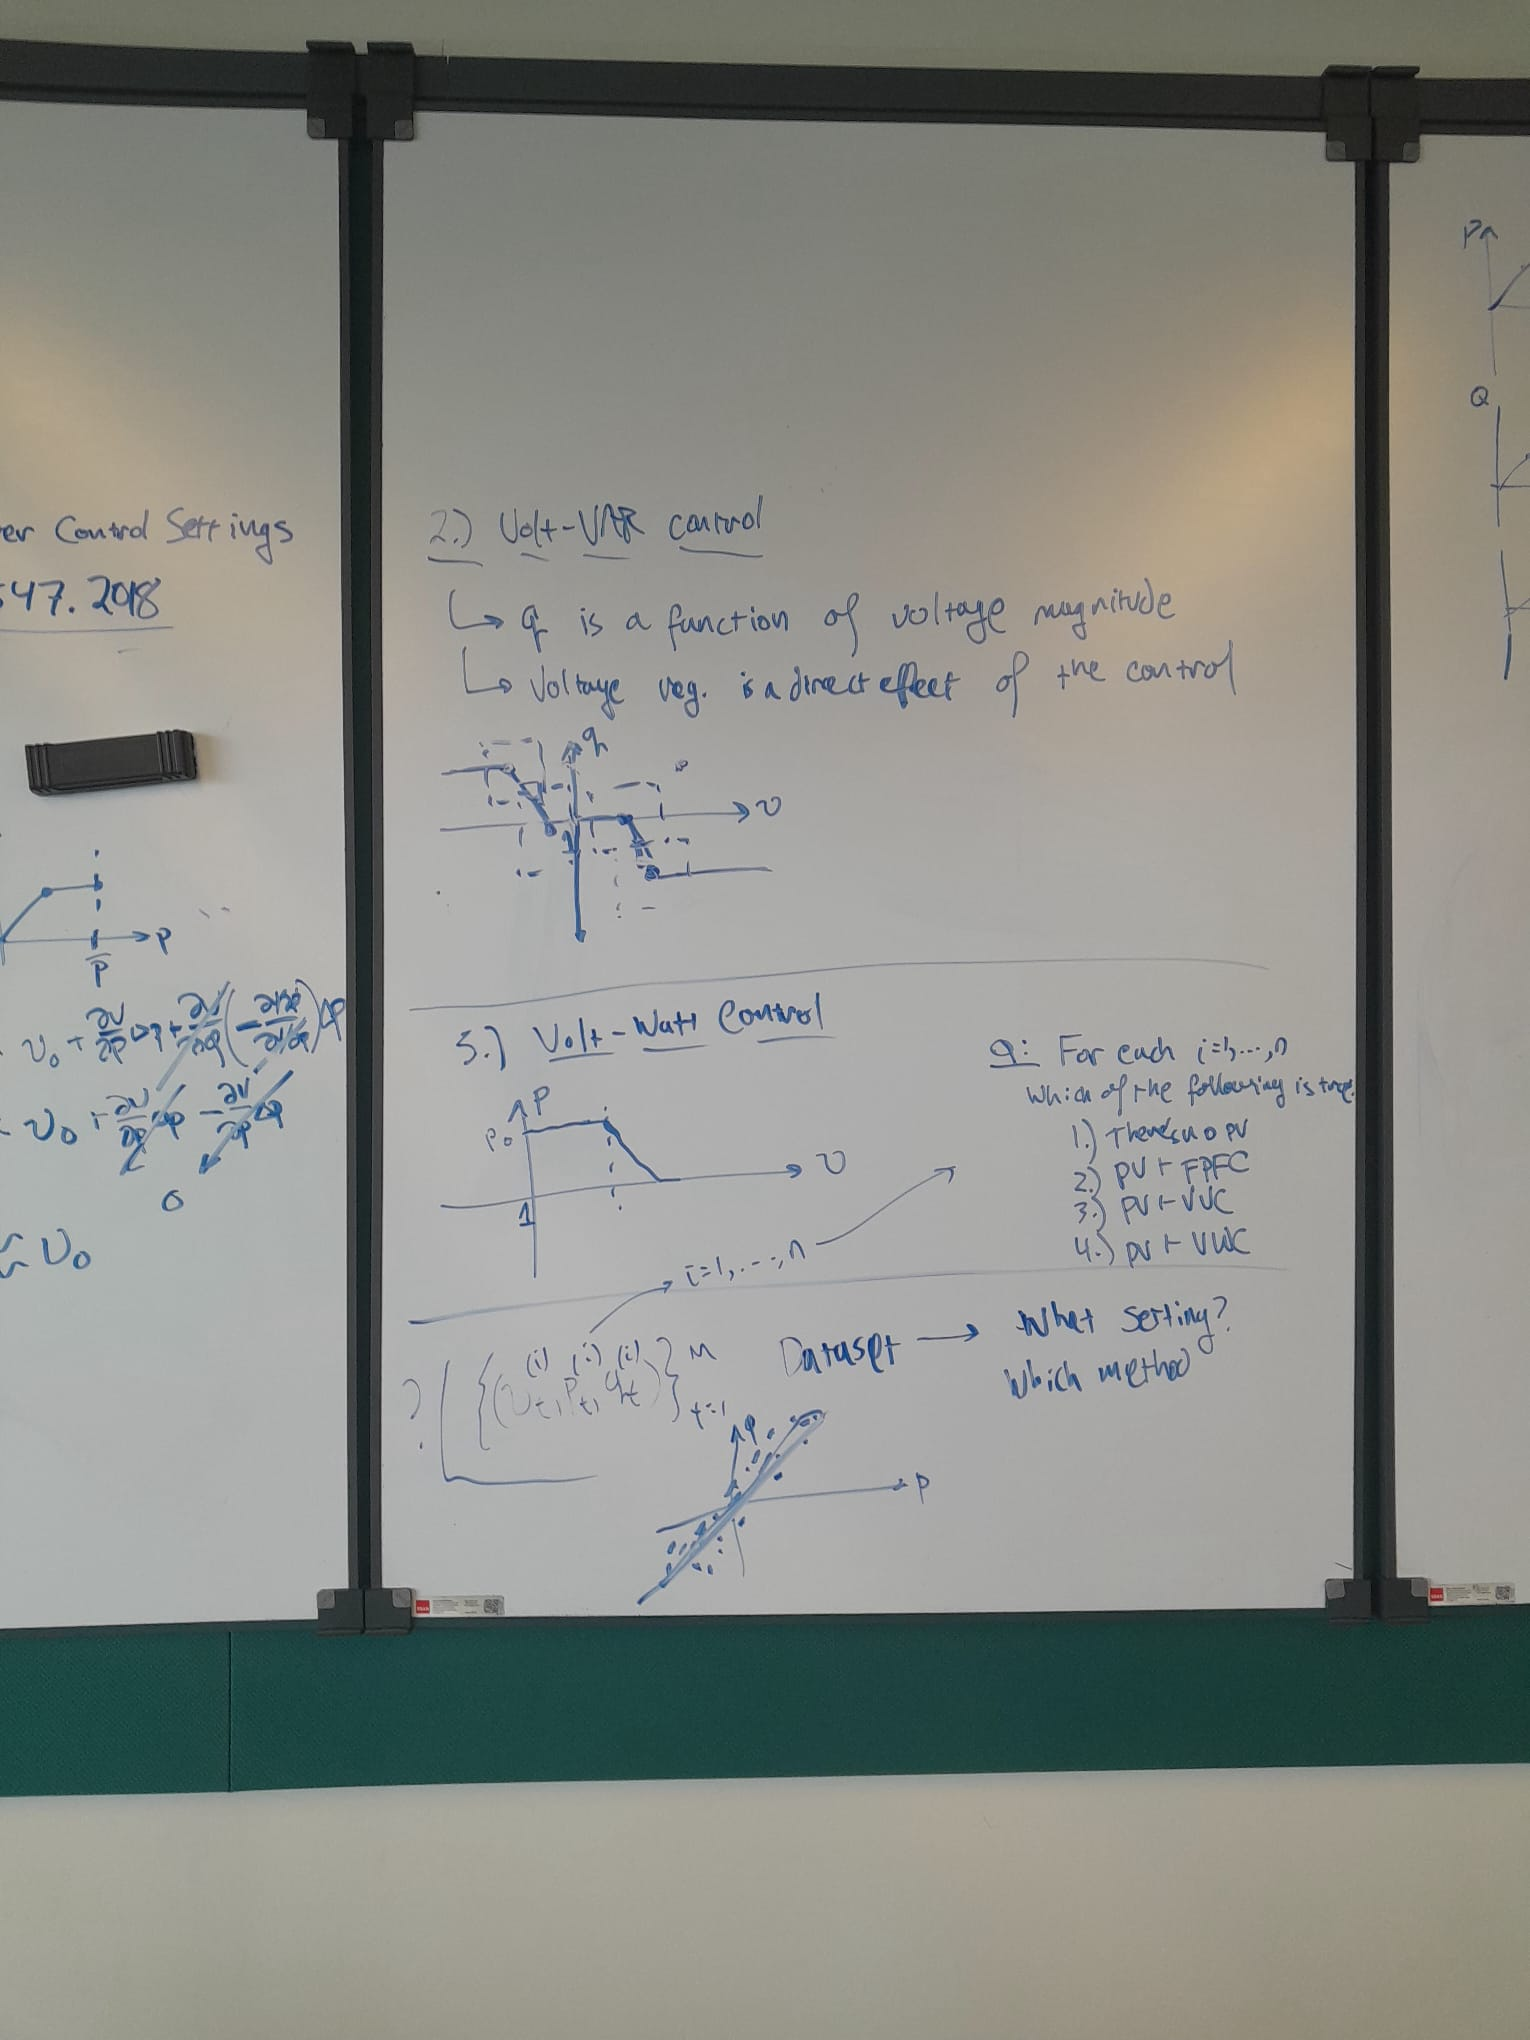 er Control Settings
547.2018
P
P
≈ υ₀
0
2.) Volt-VAR control
↳ q is a function of voltage magnitude
↳ Voltage reg. is a direct effect of the control
q
υ
1
3.) Volt-Watt Control
P
P₀
υ
1
i=1,...,n
Q: For each i=1,...,n
which of the following is true
1.) There's no PV
2.) PV + FPFC
3.) PV + VVC
4.) PV + VWC
? {(υₜ⁽ⁱ⁾, pₜ⁽ⁱ⁾, qₜ⁽ⁱ⁾)}ᴹₜ₌₁
Dataset → What setting?
Which method
q
P
P
Q